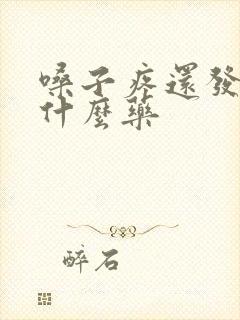 嗓子疼還發
什麼藥
醉石